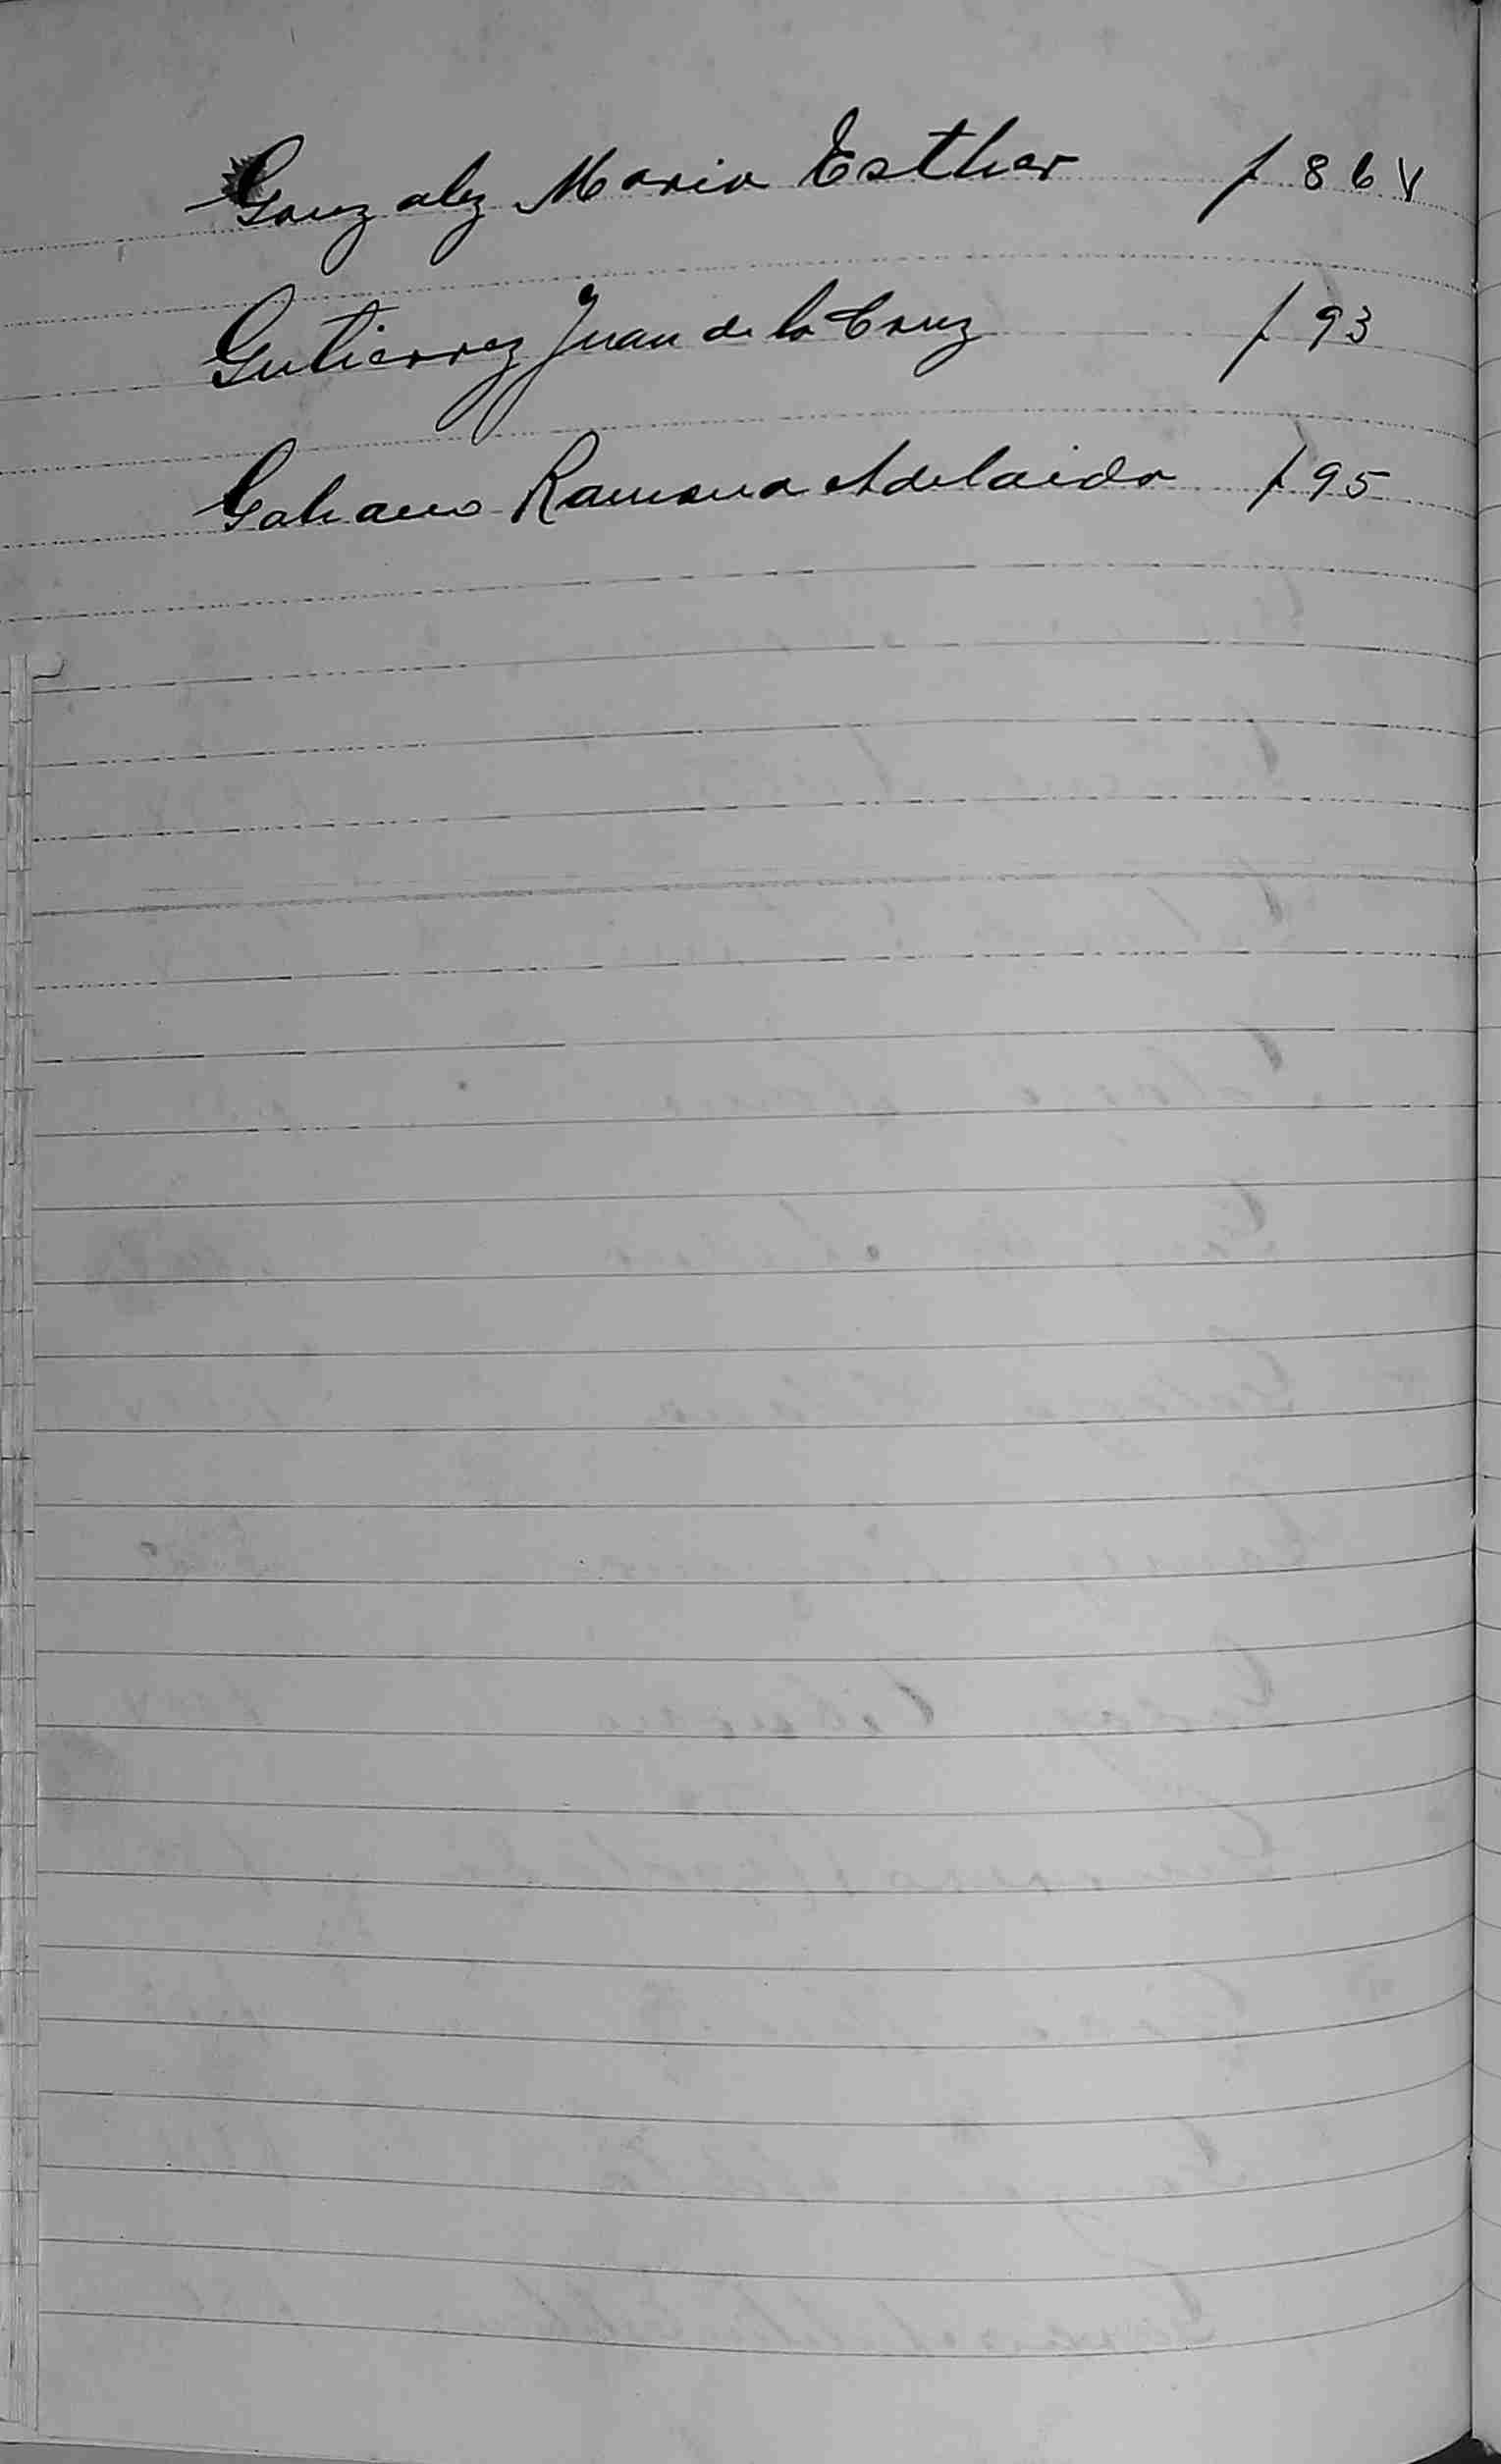 Gonzalez Maria Esther f 86 v
Gutierrez Juan de la Cruz f 93
Galeano Ramona Adelaida f 95